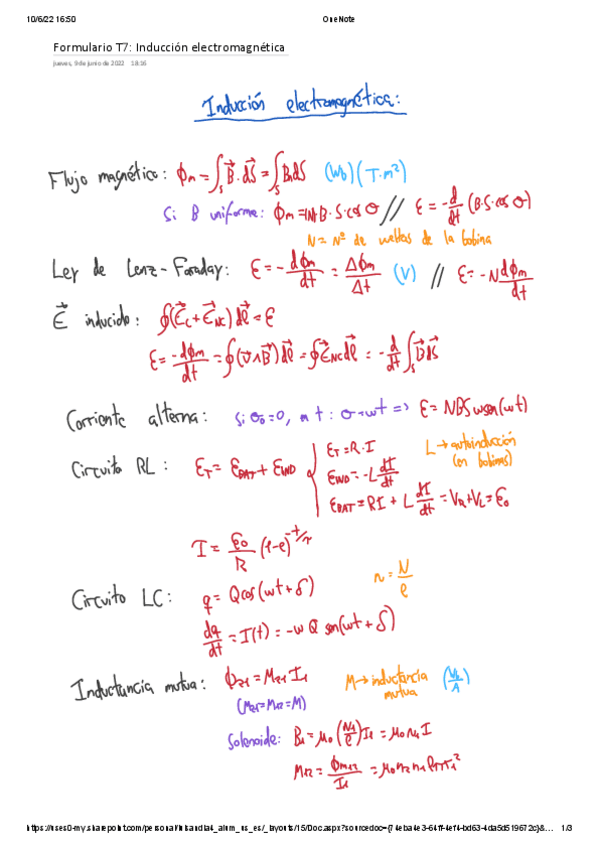 10/6/22 16:50 OneNote
Formulario T7: Inducción electromagnética
jueves, 9 de junio de 2022 18:16
Inducción electromagnética:
Flujo magnético: ϕm = ∫s B⃗·dS⃗ = ∫s BndS (Wb) (T·m²)
Si B uniforme: ϕm = N·B·S·cos σ // Ɛ = -d/dt (B·S·cos σ)
N = Nº de vueltas de la bobina
Ley de Lenz-Faraday: Ɛ = -dϕm/dt = Δϕm/Δt (V) // Ɛ = -N dϕm/dt
E⃗ inducido: ∮(E⃗c + E⃗NC) dl⃗ = Ɛ
Ɛ = -dϕm/dt = ∮(v⃗∧B⃗) dl⃗ = ∮E⃗NC dl⃗ = -d/dt ∫s B⃗dS⃗
Corriente alterna: si σ0=0, en t: σ=wt => Ɛ = NBS w sen(wt)
Circuito RL: ƐT = ƐBAT + ƐIND { ƐT = R·I
ƐIND = -L dI/dt
ƐBAT = RI + L dI/dt = VR + VL = Ɛ0
L → autoinducción
(en bobinas)
I = Ɛ0/R (1-e)^-t/τ
Circuito LC: q = Q cos(wt + δ)
n = N/l
dq/dt = I(t) = -w Q sen(wt + δ)
Inductancia mutua: ϕ21 = M21 I1
M → inductancia mutua (Wb/A)
(M21 = M12 = M)
Solenoide: B1 = μ0 (N1/l) I1 = μ0 n1 I
M12 = ϕm12/I1 = μ0 n2 n1 l π r1²
1/3